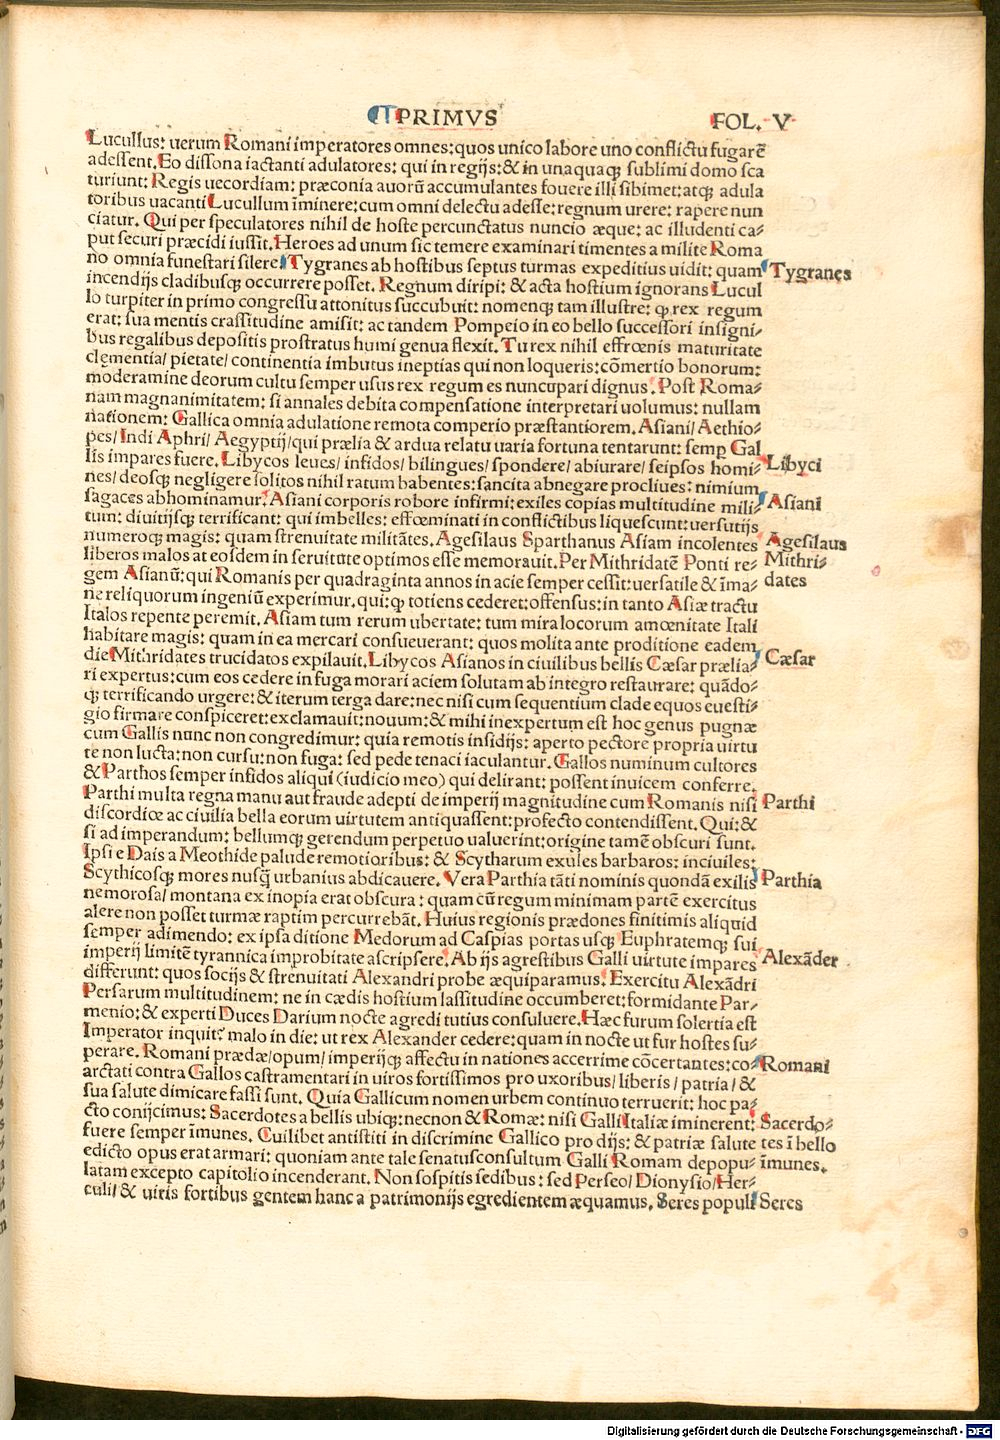 PRIMVS FOL. V
Lucullus: uerum Romani imperatores omnes: quos unico labore uno conflictu fugarē
adessent. Eo dissona iactanti adulatores: qui in regijs: & in unaquaq; sublimi domo sca
turiunt: Regis uecordiam: præconia auorū accumulantes fouere illi sibimet: atq; adula
toribus uacanti Lucullum īminere: cum omni delectu adesse: regnum urere: rapere nun
ciatur. Qui per speculatores nihil de hoste percunctatus nuncio æque: ac illudenti ca-
put securi præcidi iussit. Heroes ad unum sic temere examinari timentes a milite Roma
no omnia funestari silere. Tygranes ab hostibus septus turmas expeditius uidit: quam Tygranes
incendijs cladibusq; occurrere posset. Regnum diripi: & acta hostium ignorans Lucul
lo turpiter in primo congressu attonitus succubuit: nomenq; tam illustre: ꝙ rex regum
erat: sua mentis crassitudine amisit: ac tandem Pompeio in eo bello successori insigni-
bus regalibus depositis prostratus humi genua flexit. Tu rex nihil effrœnis maturitate
clementia/ pietate/ continentia imbutus ineptias qui non loqueris: cōmertio bonorum:
moderamine deorum cultu semper usus rex regum es nuncupari dignus. Post Roma-
nam magnanimitatem: si annales debita compensatione interpretari uolumus: nullam
nationem: Gallica omnia adulatione remota comperio præstantiorem. Asiani/ Aethio-
pes/ Indi Aphri/ Aegyptij/ qui prælia & ardua relatu uaria fortuna tentarunt: semꝑ Gal
lis impares fuere. Libycos leues/ infidos/ bilingues/ spondere/ abiurare/ seipsos homi- Libyci
nes/ deosq; negligere solitos nihil ratum babentes: sancita abnegare procliues: nimium
sagaces abhominamur. Asiani corporis robore infirmi: exiles copias multitudine mili- Asiani
tum: diuitijsq; terrificant: qui imbelles: effœminati in conflictibus liquescunt: uersutijs
numeroq; magis: quam strenuitate militātes. Agesilaus Sparthanus Asiam incolentes Agesilaus
liberos malos at eosdem in seruitute optimos esse memorauit. Per Mithridatē Ponti re- Mithri-
gem Asianū: qui Romanis per quadraginta annos in acie semper cessit: uersatile & īma- dates
ne reliquorum ingeniū experimur. qui: ꝙ totiens cederet: offensus: in tanto Asiæ tractu
Italos repente peremit. Asiam tum rerum ubertate: tum mira locorum amœnitate Itali
habitare magis: quam in ea mercari consueuerant: quos molita ante proditione eadem
die Mithridates trucidatos expilauit. Libycos Asianos in ciuilibus bellis Cæsar prælia- Cæsar
ri expertus: cum eos cedere in fuga morari aciem solutam ab integro restaurare: quādo-
q; terrificando urgere: & iterum terga dare: nec nisi cum sequentium clade equos euesti-
gio firmare conspiceret: exclamauit: nouum: & mihi inexpertum est hoc genus pugnæ
cum Gallis nunc non congredimur: quia remotis insidijs: aperto pectore propria uirtu
te non lucta: non cursu: non fuga: sed pede tenaci iaculantur. Gallos numinum cultores
& Parthos semper infidos aliqui (iudicio meo) qui delirant: possent inuicem conferre.
Parthi multa regna manu aut fraude adepti de imperij magnitudine cum Romanis nisi Parthi
discordiæ ac ciuilia bella eorum uirtutem antiquassent: profecto contendissent. Qui: &
si ad imperandum: bellumq; gerendum perpetuo ualuerint: origine tamē obscuri sunt.
Ipsi e Dais a Meothide palude remotioribus: & Scytharum exules barbaros: inciuiles:
Scythicosq; mores nusq̄ urbanius abdicauere. Vera Parthia tāti nominis quondā exilis Parthia
nemorosa/ montana ex inopia erat obscura: quam cū regum minimam partē exercitus
alere non posset turmæ raptim percurrebāt. Huius regionis prædones finitimis aliquid
semper adimendo: ex ipsa ditione Medorum ad Caspias portas usq; Euphratemq; sui
imperij limitē tyrannica improbitate ascripsere. Ab ijs agrestibus Galli uirtute impares Alexāder
differunt: quos socijs & strenuitati Alexandri probe æquiparamus. Exercitu Alexādri
Persarum multitudinem: ne in cædis hostium lassitudine occumberet: formidante Par-
menio: & experti Duces Darium nocte agredi tutius consuluere. Hæc furum solertia est
Imperator inquit: malo in die: ut rex Alexander cedere: quam in nocte ut fur hostes su-
perare. Romani prædæ/ opum/ imperijq; affectu in nationes accerrime cōcertantes: co- Romani
arctati contra Gallos castramentari in uiros fortissimos pro uxoribus/ liberis/ patria/ &
sua salute dimicare fassi sunt. Quia Gallicum nomen urbem continuo terruerit: hoc pa-
cto conijcimus: Sacerdotes a bellis ubiq;: necnon & Romæ: nisi Galli Italiæ iminerent: Sacerdo-
fuere semper īmunes. Cuilibet antistiti in discrimine Gallico pro dijs: & patriæ salute tes ī bello
edicto opus erat armari: quoniam ante tale senatusconsultum Galli Romam depopu- īmunes.
latam excepto capitolio incenderant. Non sospitis sedibus: sed Perseo/ Dionysio/ Her-
culi/ & uiris fortibus gentem hanc a patrimonijs egredientem æquamus. Seres populi Seres
Digitalisierung gefördert durch die Deutsche Forschungsgemeinschaft - DFG